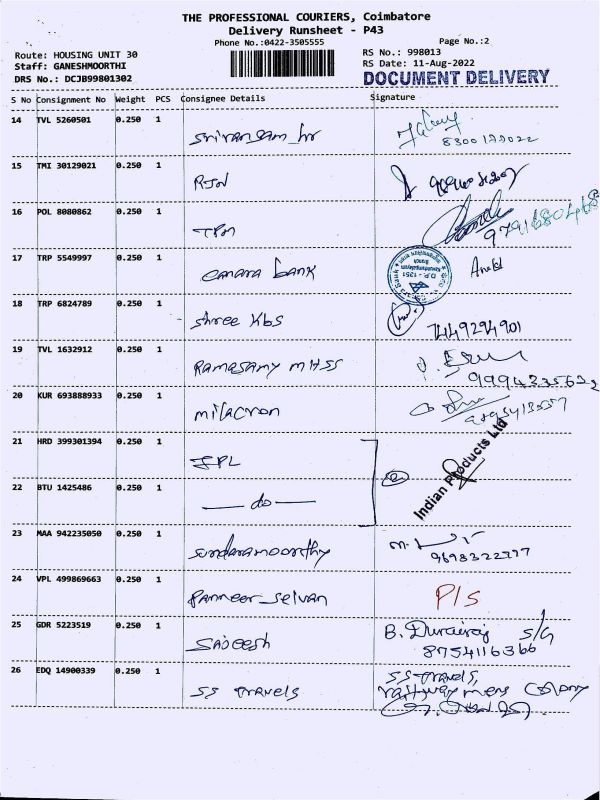 THE PROFESSIONAL COURIERS, Coimbatore
Delivery Runsheet - P43
Phone No.:0422-3505555
Page No.:2
Route: HOUSING UNIT 30
RS No.: 998013
Staff: GANESHMOORTHI
RS Date: 11-Aug-2022
DRS No.: DCJB99801302
DOCUMENT DELIVERY
S No Consignment No Weight PCS Consignee Details Signature
14 TVL 5260501 0.250 1
8300177022
15 TMI 30129021 0.250 1 RJN
16 POL 8080862 0.250 1 TPM
9791680468
17 TRP 5549997 0.250 1 canara bank
18 TRP 6824789 0.250 1 shree kbs
7449294901
19 TVL 1632912 0.250 1 Ramasamy MHSS
20 KUR 693888933 0.250 1 milacron
21 HRD 399301394 0.250 1 IPL
Indian Products Ltd
22 BTU 1425486 0.250 1 — do —
23 MAA 942235050 0.250 1 sundaramoorthy
9698322777
24 VPL 499869663 0.250 1 Panneer selvan P/s
25 GDR 5223519 0.250 1 Sadeesh B. Durairaj s/G
8754116366
26 EDQ 14900339 0.250 1 SS travels SS travels,
colony